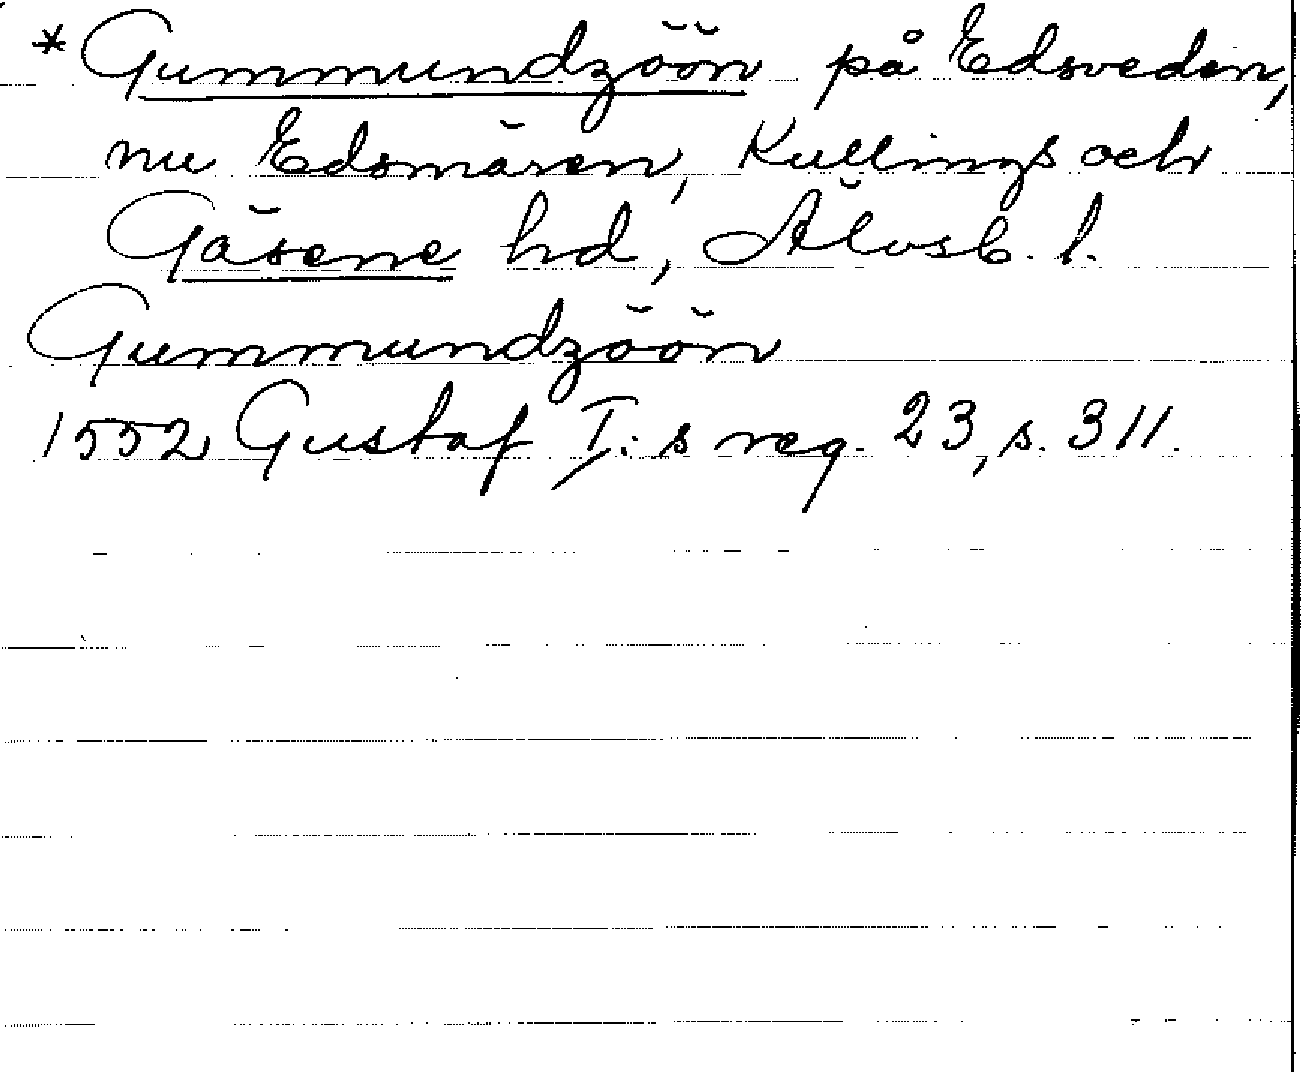 *Gummundzöön på Edsveden,
nu Edsmären, Kullings och
Gäsene hd, Älvsb. l.
Gummundzöön
1552 Gustaf I:s reg. 23, s. 311.